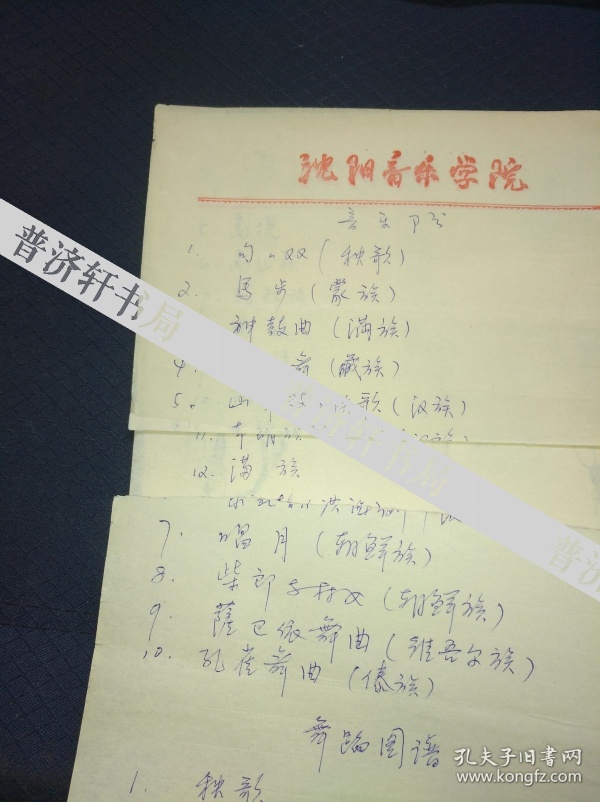 沈阳音乐学院
音乐部分
1. 句句双(秧歌)
2. 马步(蒙族)
神鼓曲(满族)
4. 舞(藏族)
5. 秧歌(汉族)
11.
12. 满族
7. 唱月(朝鲜族)
8. 柴郎与村女(朝鲜族)
9. 萨巴依舞曲(维吾尔族)
10. 孔雀舞曲(傣族)
舞蹈图谱
1. 秧歌
普济轩书局
普济轩书局
普济
孔夫子旧书网
www.kongfz.com